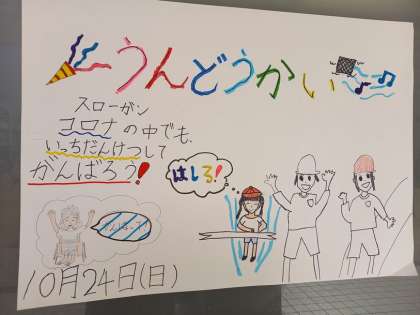 うんどうかい
スローガン
コロナの中でも、
いっちだんけつして
がんばろう!
はしろ!
10月24日(日)